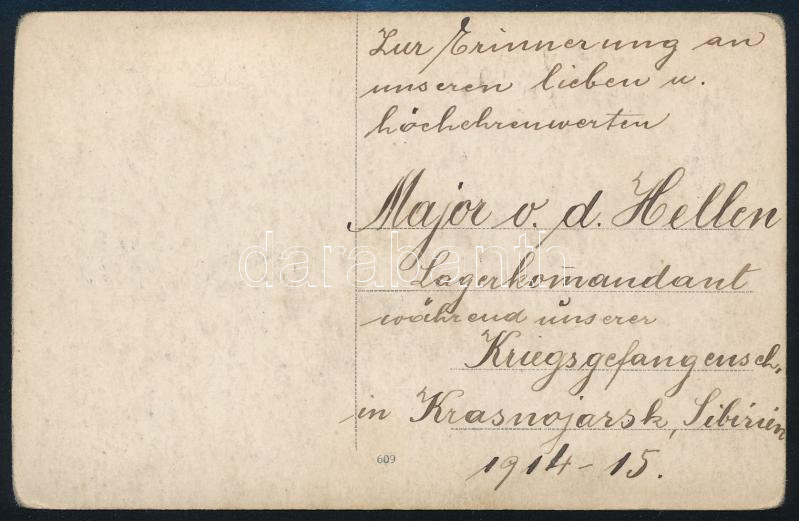 Zur Erinnerung an
unseren lieben u.
hochehrenwerten
Major v. d. Hellen
darabanth
Lagerkom̄andant
während unserer
Kriegsgefangensch.
in Krasnojarsk, Sibirien
1914-15.
609